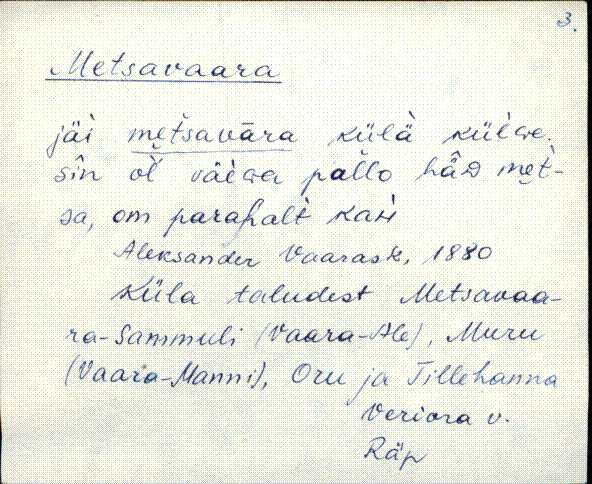 3.
Metsavaara
jäi metsavāra külä külge.
sîn ol̀ väega pal̀lo hä̂d met̀-
sa, om parahalt kah
Aleksander Vaarask, 1880
Küla taludest Metsavaa-
ra-Sammuli (Vaara-Ale), Muru
(Vaara-Manni), Oru ja Tillehanna
Veriora v.
Räp